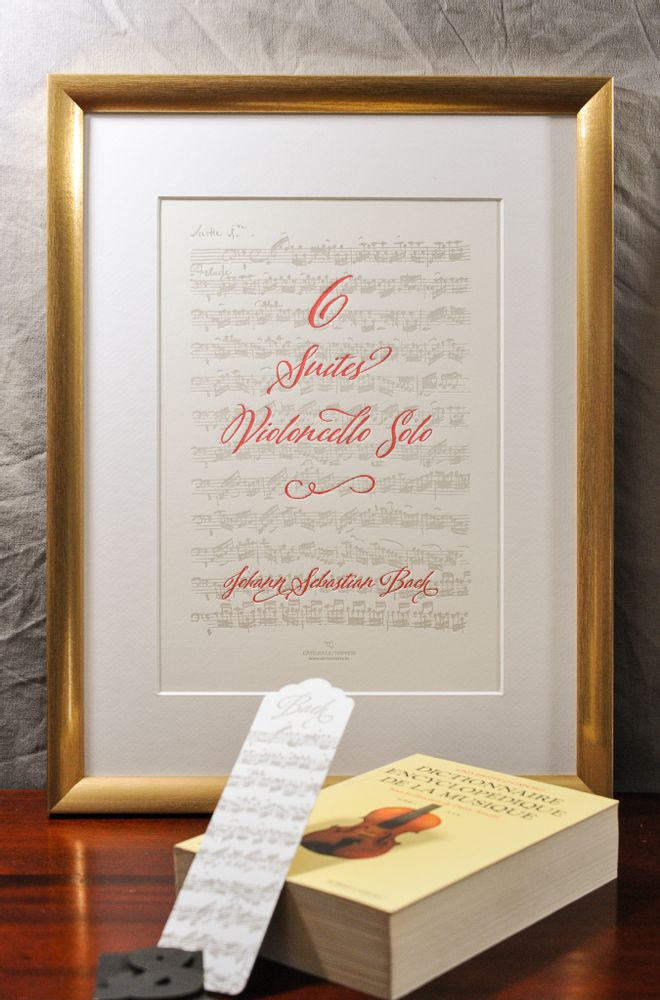 Suite 1re
Prelude
6
Suites
Violoncello Solo
Johann Sebastian Bach
Bach
DICTIONNAIRE
ENCYCLOPÉDIQUE
DE LA MUSIQUE